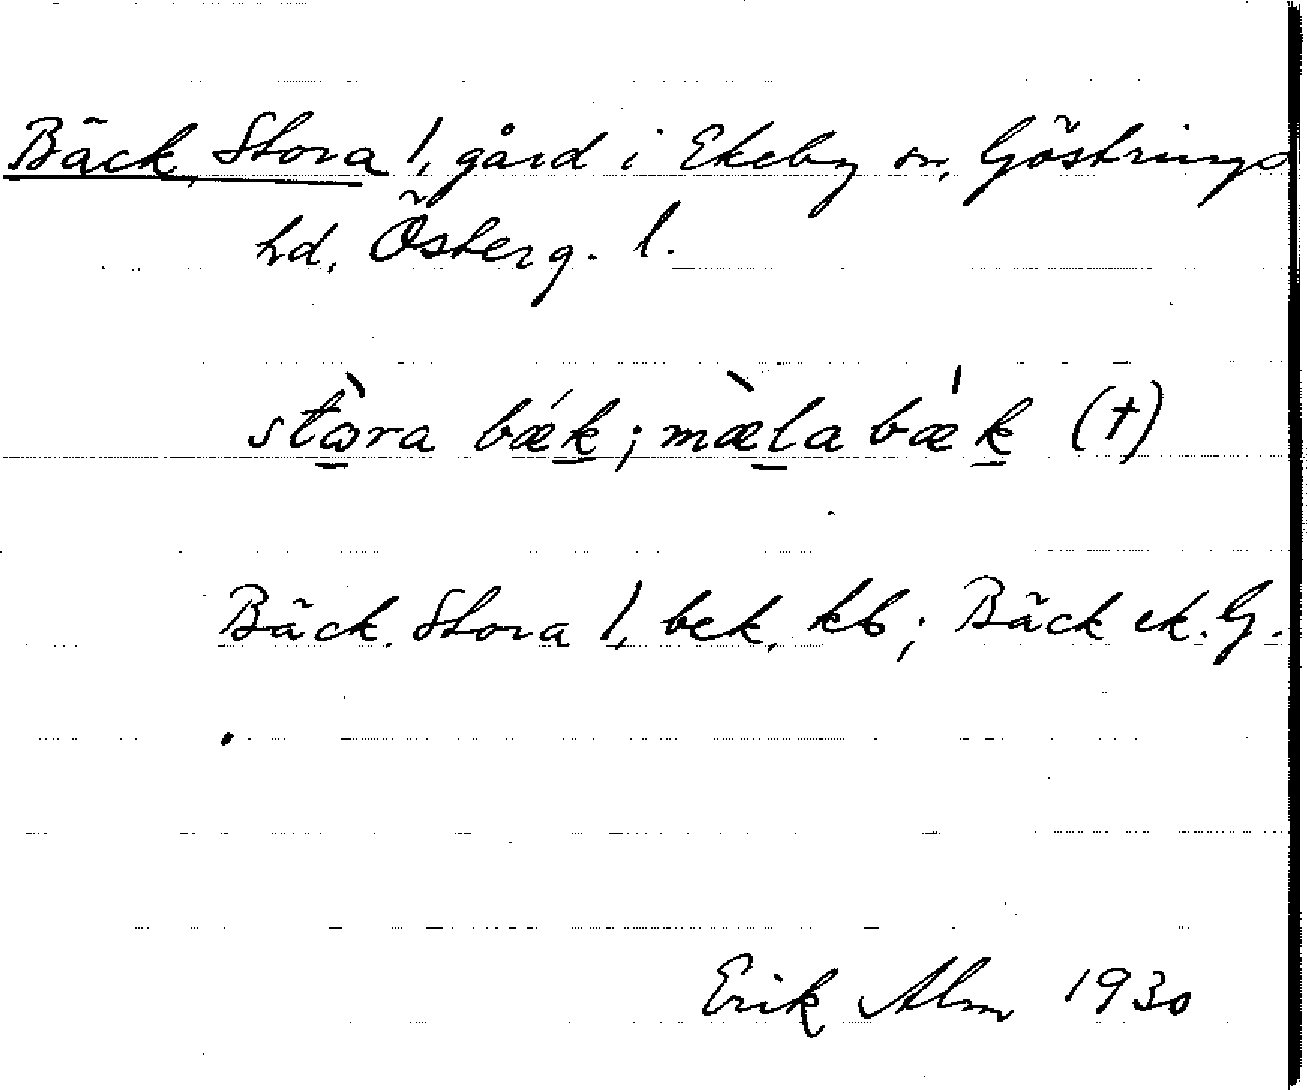 Bäck, Stora 1, gård i Ekeby sn, Göstrings
hd, Österg. l.
stòra bǽk; mæ̀la bǽk (†)
Bäck, Stora 1, bek, kb; Bäck ek. G.
Erik Alm 1930